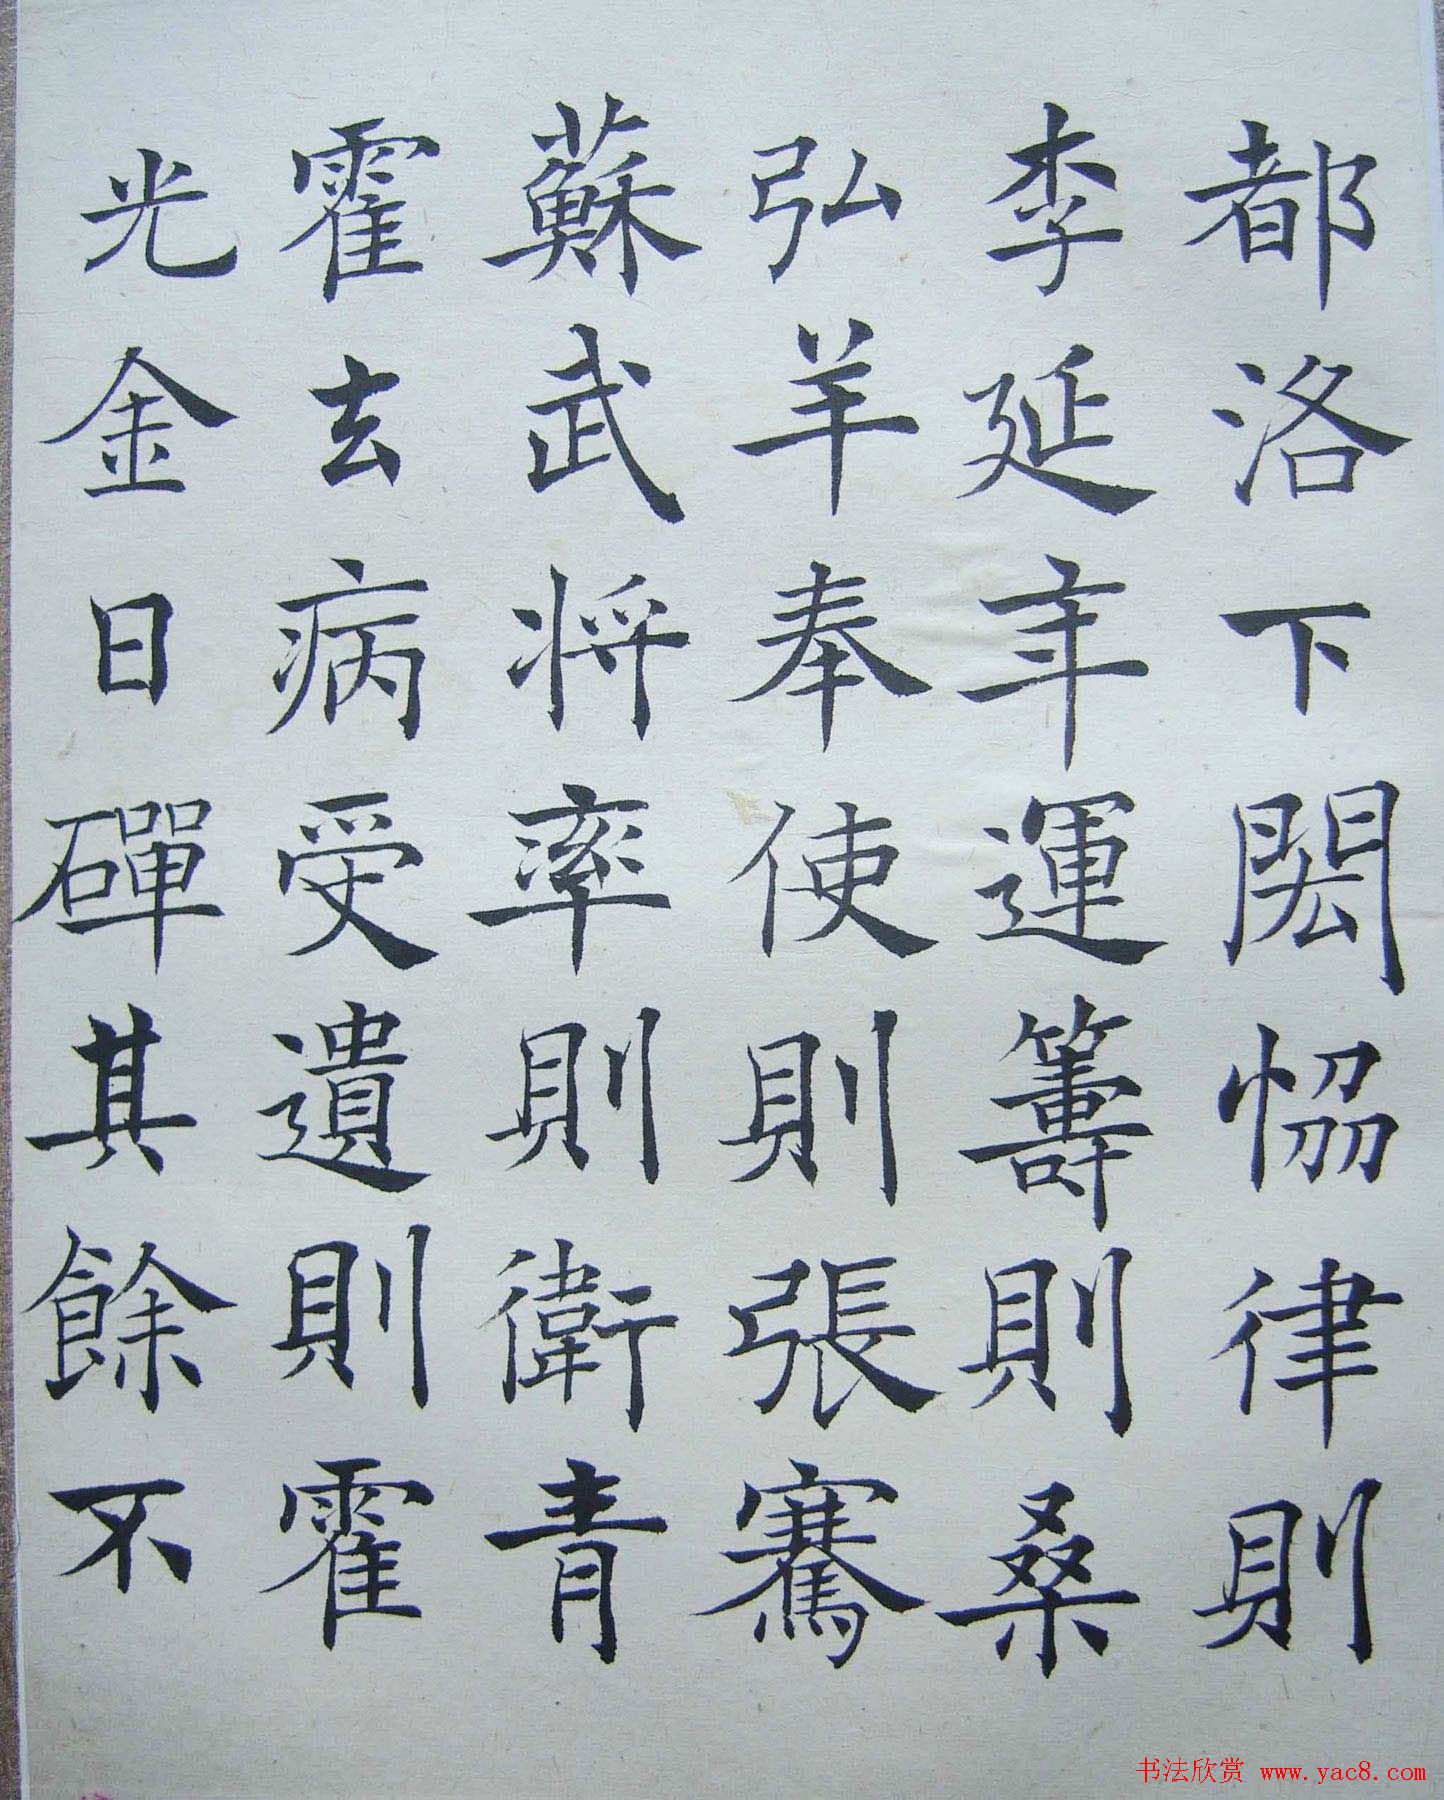 都洛下閎恊律則
李延年運籌則桑
弘羊奉使則張騫
蘇武将率則衛青
霍去病受遺則霍
光金日磾其餘不
书法欣赏 www.yac8.com